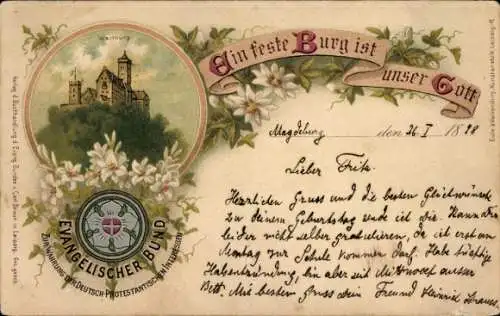 WARTBURG
Ein feste Burg ist
unser Gott
Magdeburg, den 26. I. 1898
Lieber Fritz.
Herzlichen Gruss und die besten Glückwünsche
zu deinem Geburtstag sende ich dir. Kann dir
leider nicht selber gratulieren, da ich erst am
Montag zur Schule kommen darf. Habe tüchtige
Halsentzündung, bin aber seit Mittwoch ausser
Bett. Mit besten Gruss dein Freund Heinrich
EVANGELISCHER BUND
ZUR WAHRUNG DER DEUTSCH-PROTESTANTISCHEN INTERESSEN